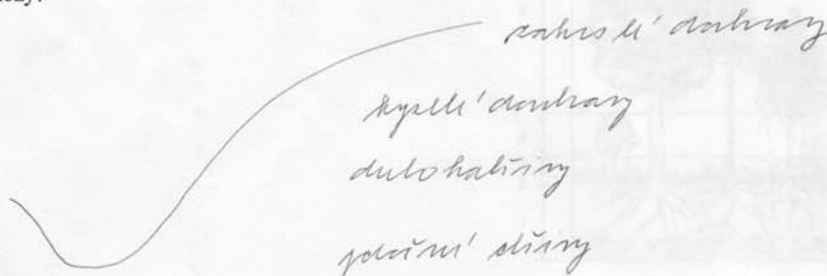 zakrslé doubravy
kyselé doubravy
dubohabřiny
potoční olšiny